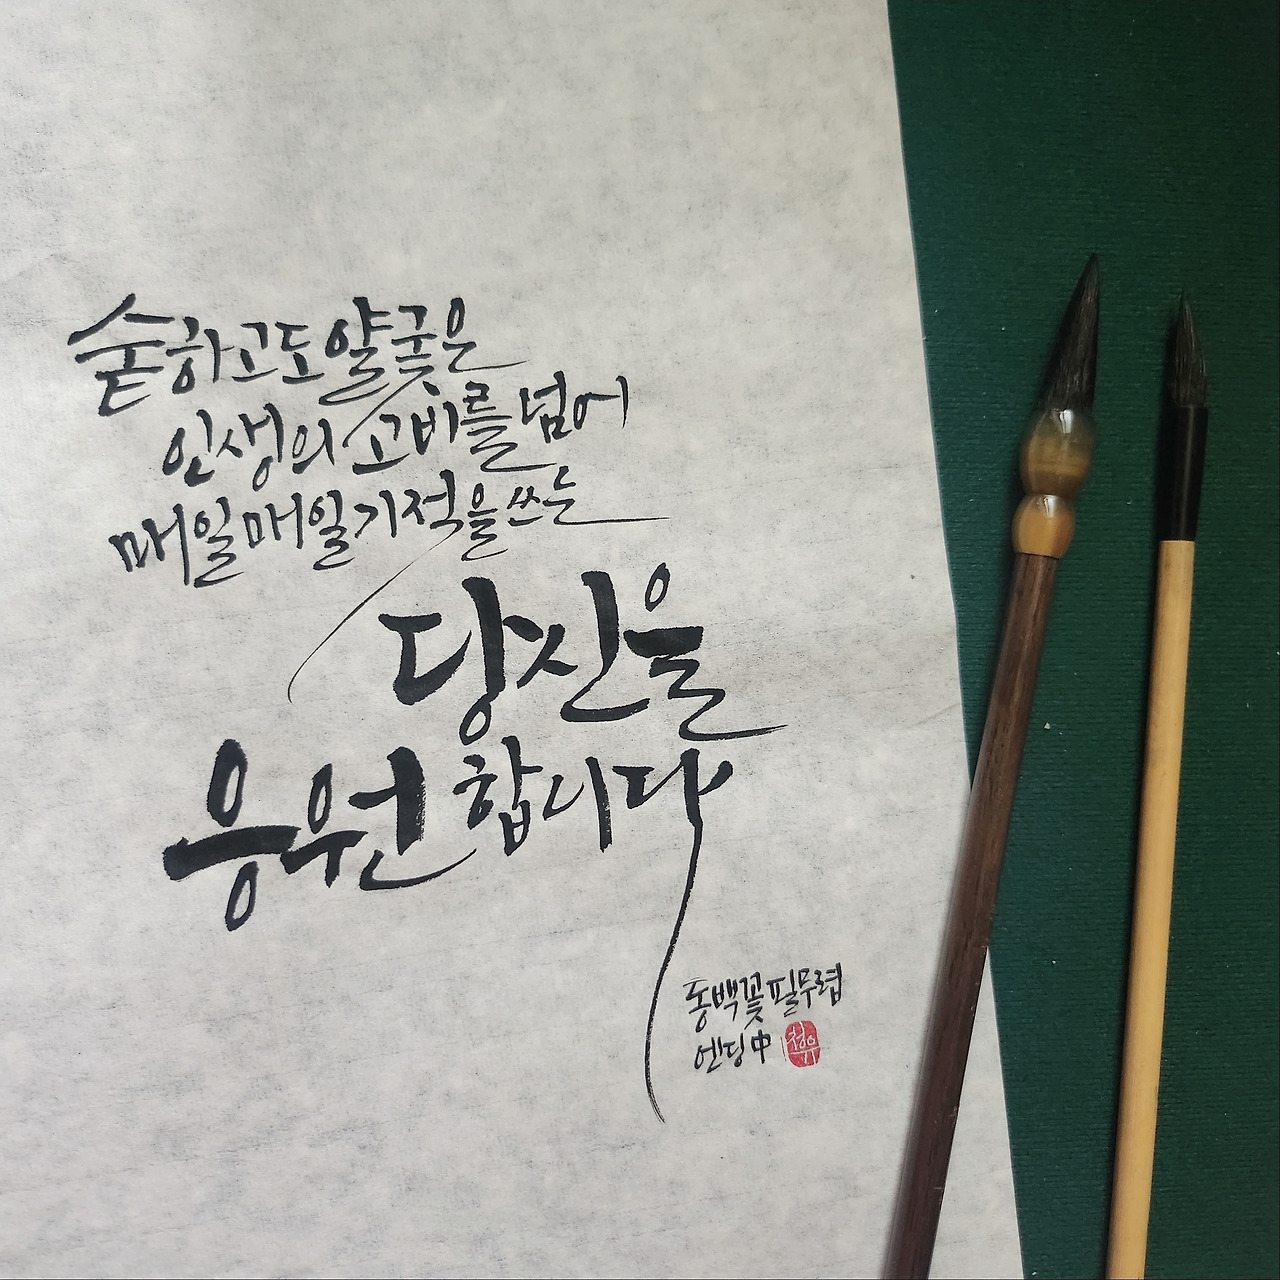 숱하고도 얄궂은
인생의 고비를 넘어
매일매일 기적을 쓰는
당신을
응원합니다
동백꽃 필 무렵
엔딩 中